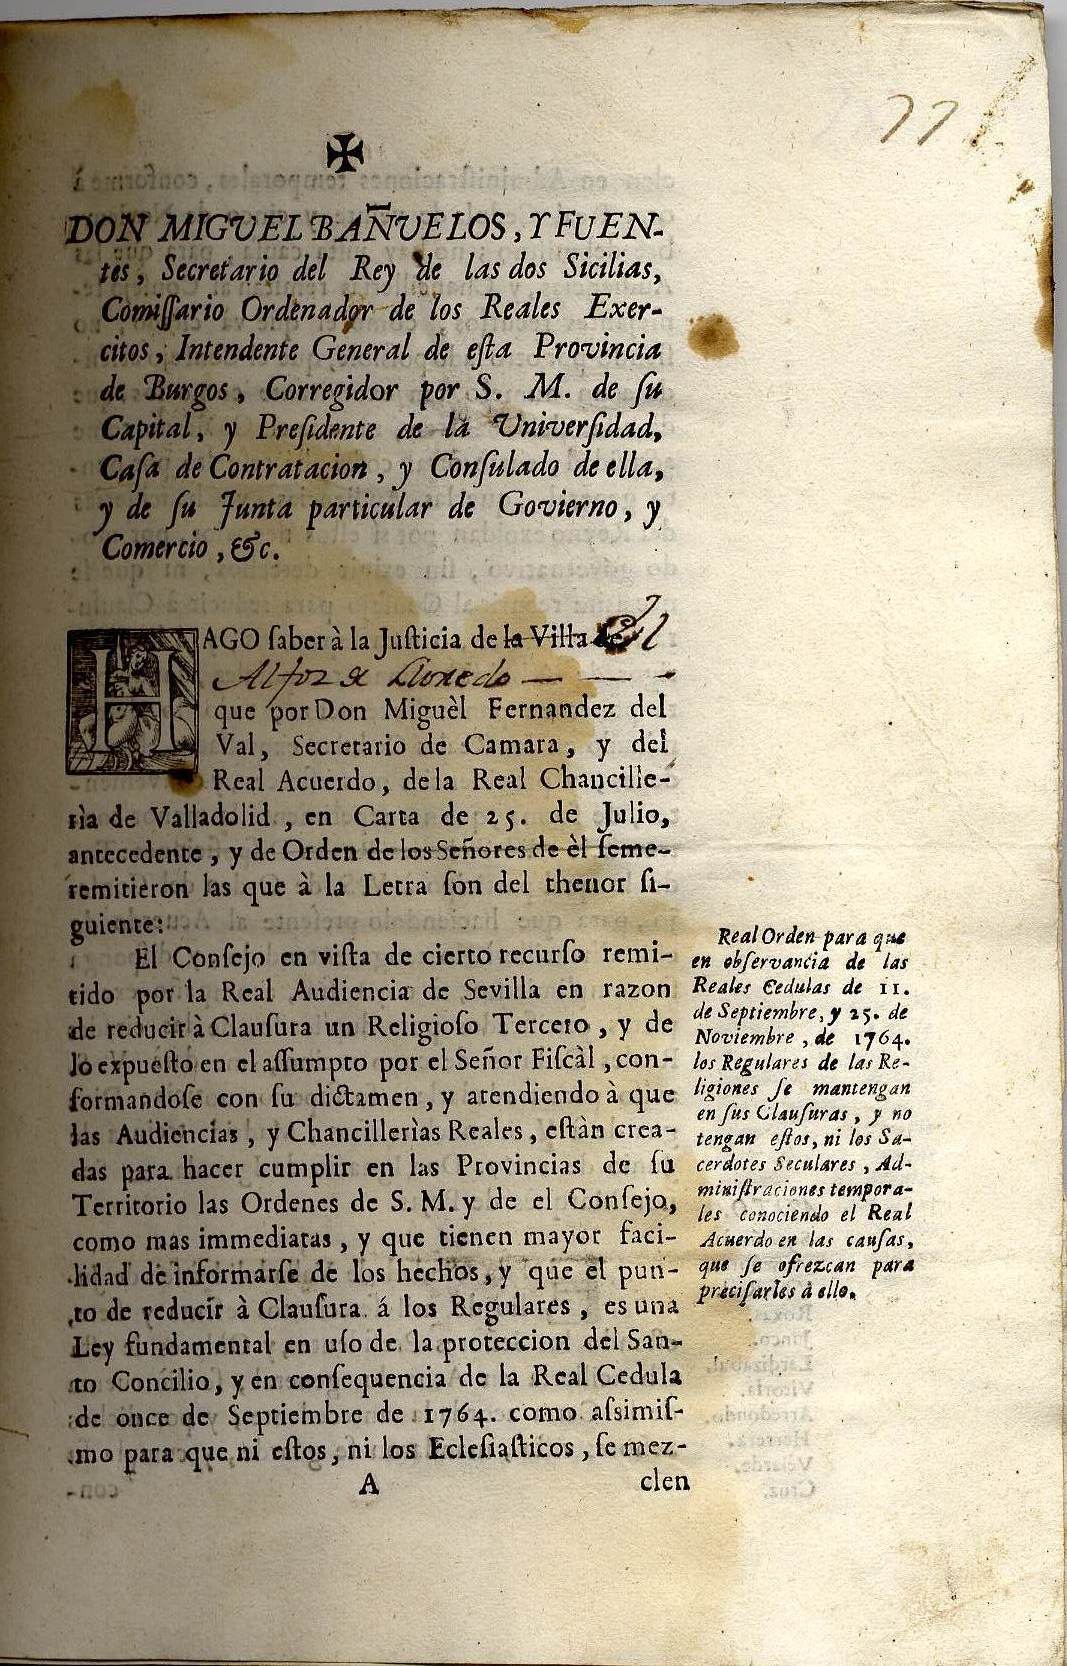 77
✠
DON MIGUEL BAÑUELOS, Y FUEN-
tes, Secretario del Rey de las dos Sicilias,
Comiſſario Ordenador de los Reales Exer-
citos, Intendente General de eſta Provincia
de Burgos, Corregidor por S. M. de ſu
Capital, y Preſidente de la Univerſidad,
Caſa de Contratacion, y Conſulado de ella,
y de ſu Junta particular de Govierno, y
Comercio, &c.
HAGO ſaber à la Juſticia de la Villa de el
Alfoz de Lloredo
que por Don Miguèl Fernandez del
Val, Secretario de Camara, y del
Real Acuerdo, de la Real Chancille-
rìa de Valladolid, en Carta de 25. de Julio,
antecedente, y de Orden de los Señores de èl ſeme-
remitieron las que à la Letra ſon del thenor ſi-
guiente:
El Conſejo en viſta de cierto recurſo remi-
tido por la Real Audiencia de Sevilla en razon
de reducir à Clauſura un Religioſo Tercero, y de
lo expueſto en el aſſumpto por el Señor Fiſcàl, con-
formandoſe con ſu dictamen, y atendiendo à que
las Audiencias, y Chancillerìas Reales, eſtàn crea-
das para hacer cumplir en las Provincias de ſu
Territorio las Ordenes de S. M. y de el Conſejo,
como mas immediatas, y que tienen mayor faci-
lidad de informarſe de los hechos, y que el pun-
to de reducir à Clauſura á los Regulares, es una
Ley fundamental en uſo de la proteccion del San-
to Concilio, y en conſequencia de la Real Cedula
de once de Septiembre de 1764. como aſsimiſ-
mo para que ni eſtos, ni los Ecleſiaſticos, ſe mez-
A clen
Real Orden para que
en obſervancia de las
Reales Cedulas de 11.
de Septiembre, y 25. de
Noviembre, de 1764.
los Regulares de las Re-
ligiones ſe mantengan
en ſus Clauſuras, y no
tengan eſtos, ni los Sa-
cerdotes Seculares, Ad-
miniſtraciones tempora-
les conociendo el Real
Acuerdo en las cauſas,
que ſe ofrezcan para
preciſarles à ello.